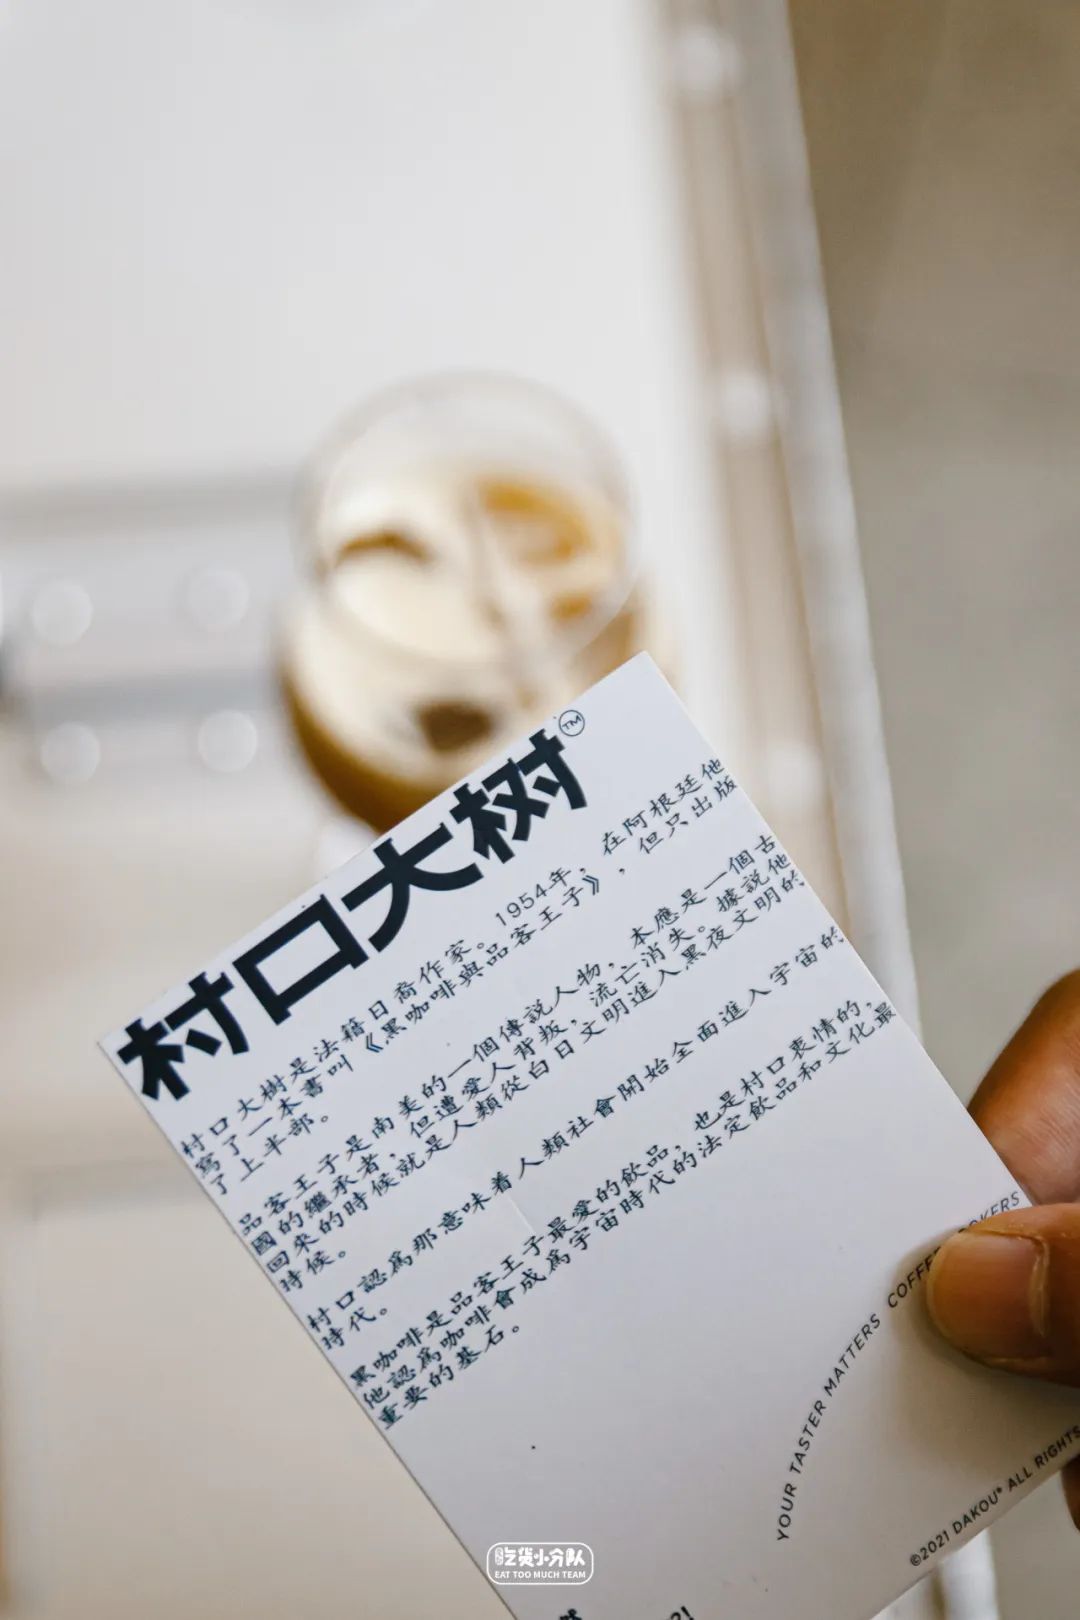 村口大树™
村口大樹是法籍日裔作家。1954年，在阿根廷他
寫了一本書叫《黑咖啡與品客王子》，但只出版
了上半部。
品客王子是南美的一個傳説人物，本應是一個古
國的繼承者，但遭愛人背叛，流亡消失。據説他
回來的時候就是人類從白日文明進入黑夜文明的
時候。
村口認爲那意味着人類社會開始全面進入宇宙的
時代。
黑咖啡是品客王子最愛的飲品，也是村口衷情的，
他認爲咖啡會成爲宇宙時代的法定飲品和文化最
重要的基石。
YOUR TASTER MATTERS
©2021 DAKOU® ALL RIGHTS
吃货小分队
EAT TOO MUCH TEAM